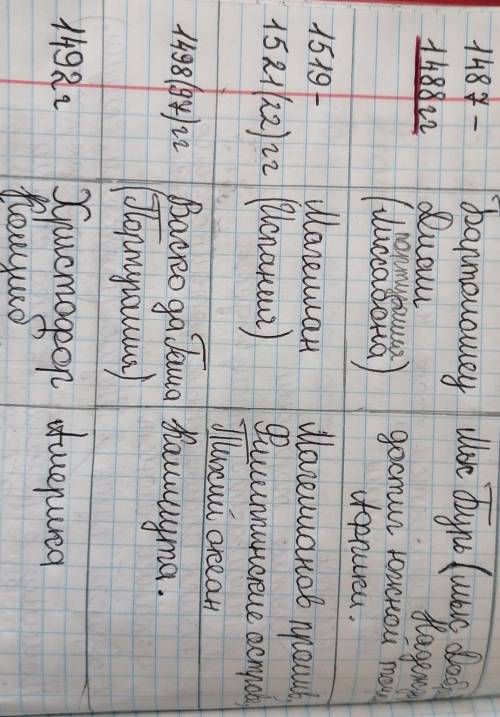 1487 -
1488 гг
Бартоломеу
Диаш
португалия
(Лиссабона)
Мыс Бурь (мыс Добр
Надежд
достиг южной точк
Африки.
1519 -
1521(22) гг
Магеллан
(Испания)
Магелланов пролив,
Филиппинские остров
Тихий океан
1498(97) гг
Васко да Гама
(Португалия)
Каликута.
1492 г
Христофор
Колумб
Америка